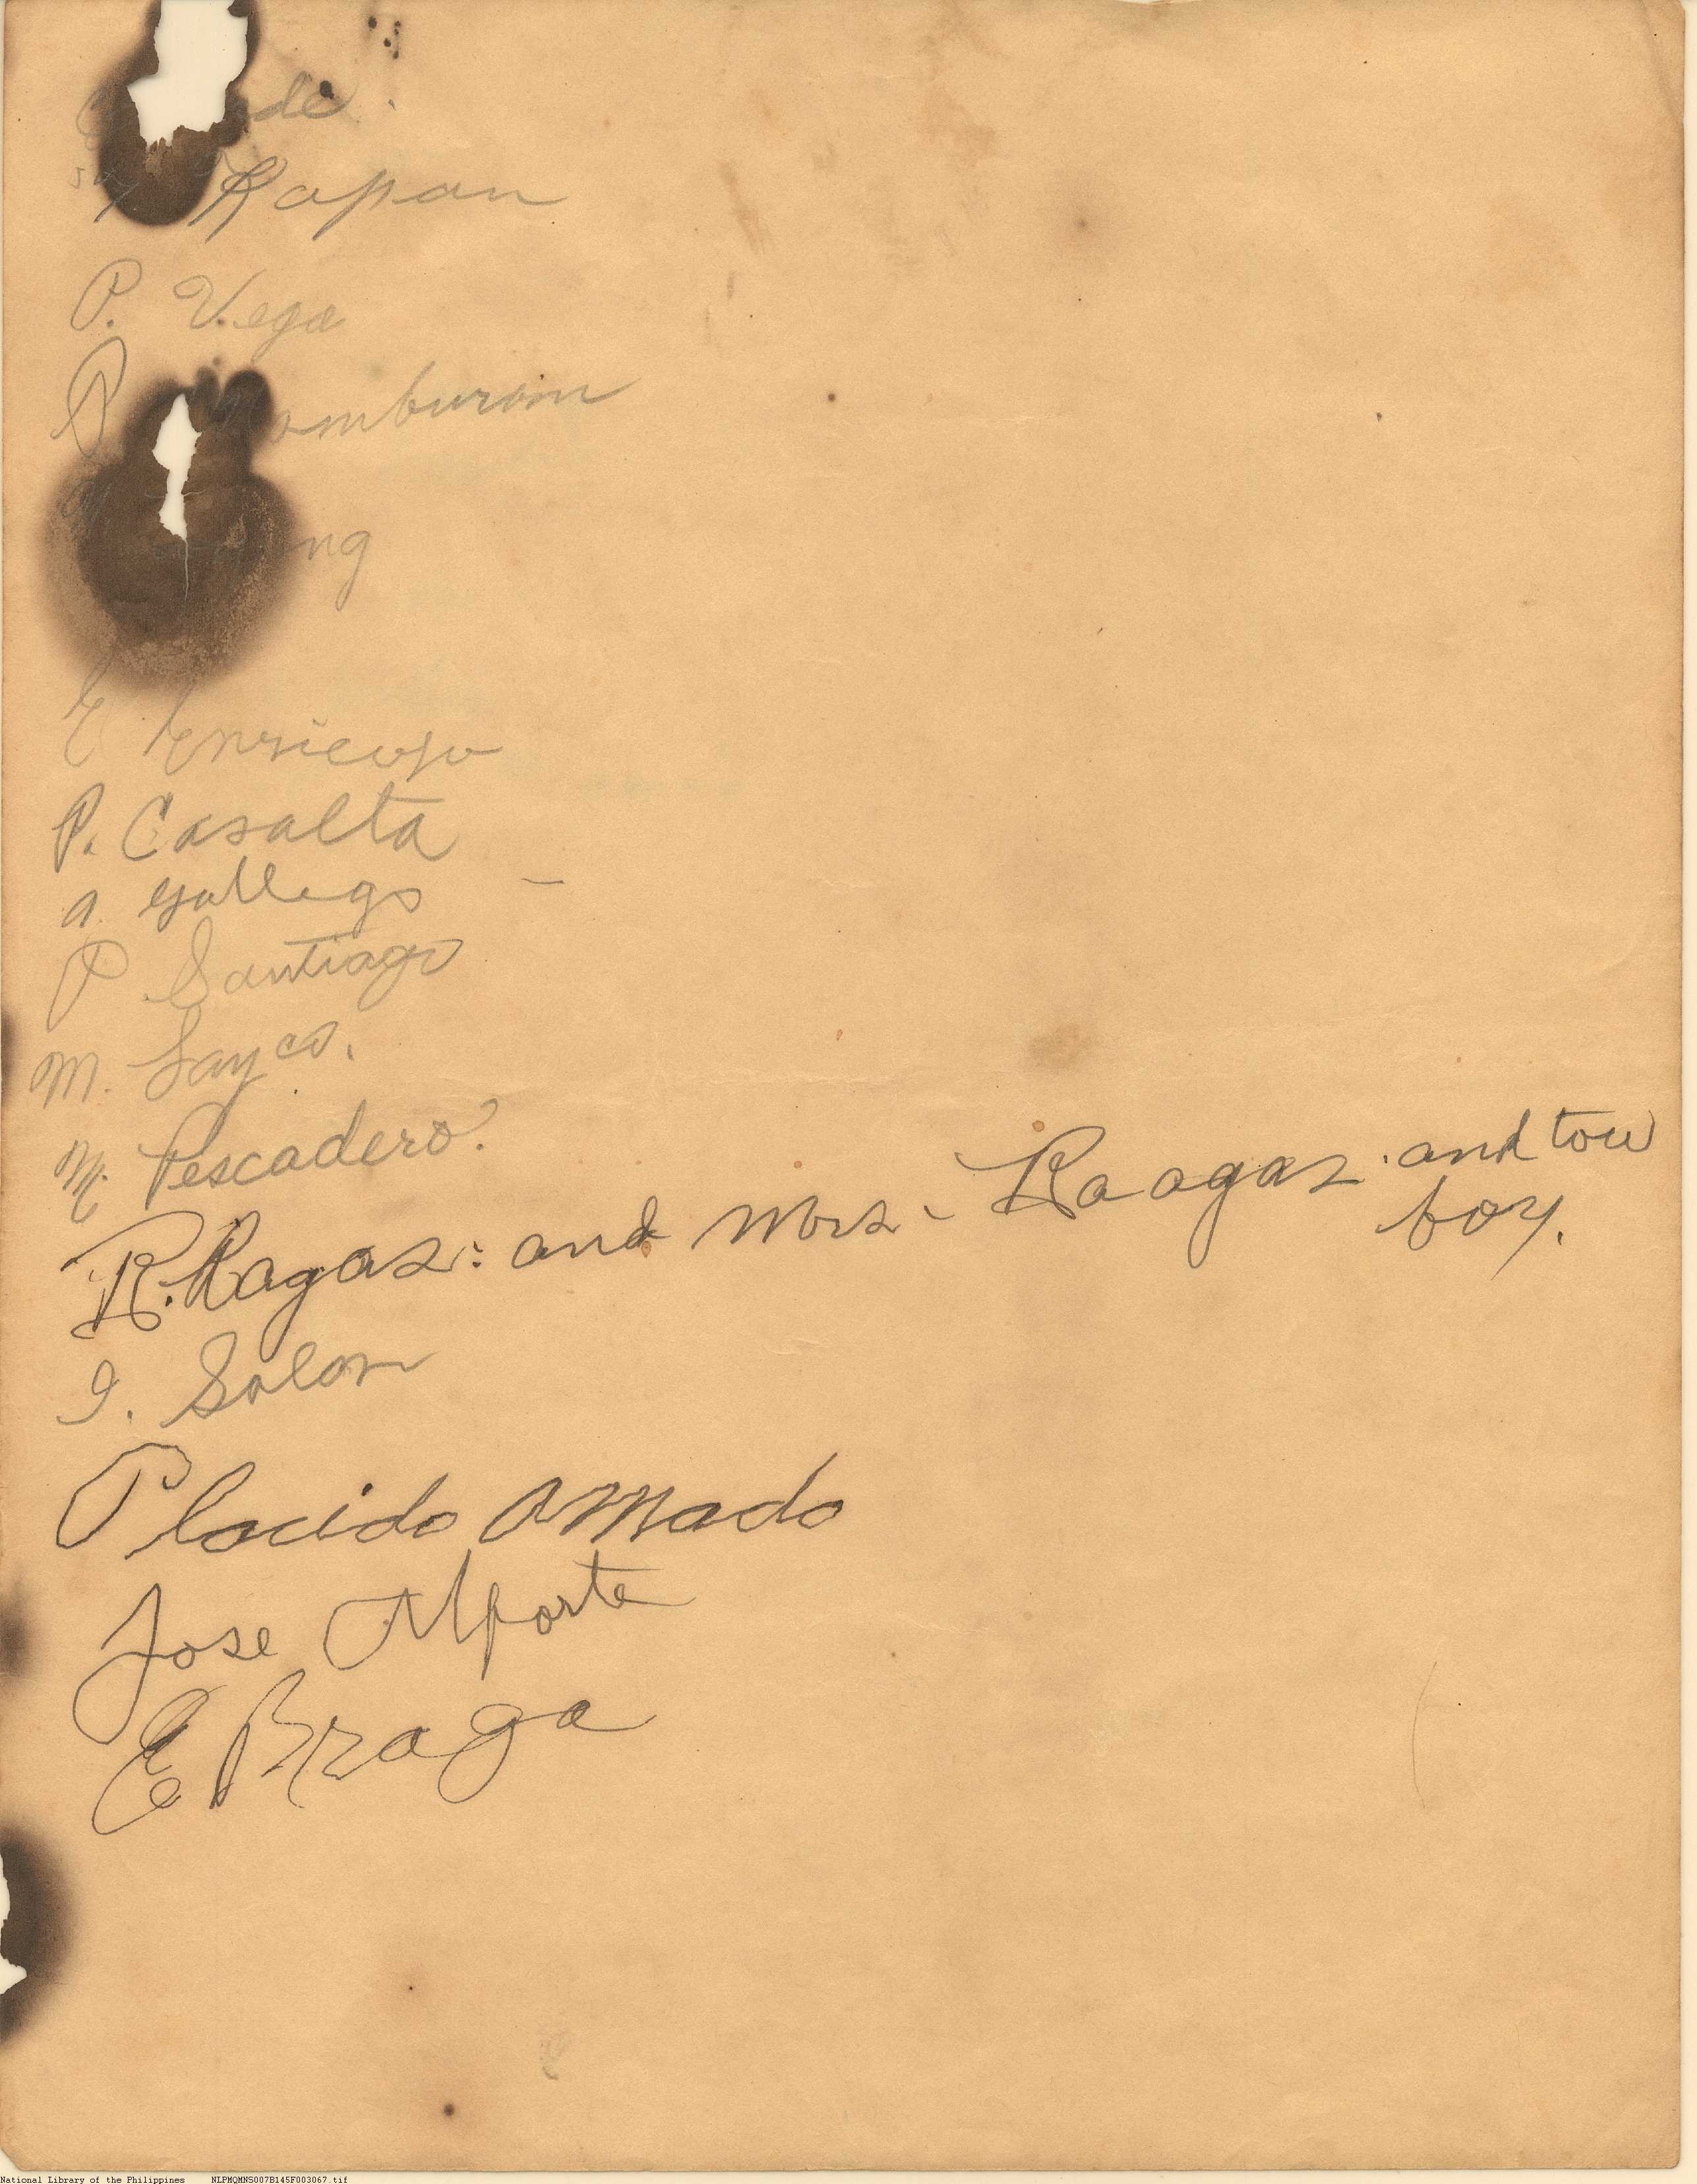 de.
Rapan
P. Vega
P. amburom
ng
E Enricoso
P. Casalta
a gallego
P Santiago
M. Sayco.
M. Pescadero.
R. Ragas: and Mrs. Raagas. and tow
boy.
I. Solon
Placido Amado
Jose Alforte
E Braga
National Library of the Philippines NLPMQMNS007B145F003067.tif